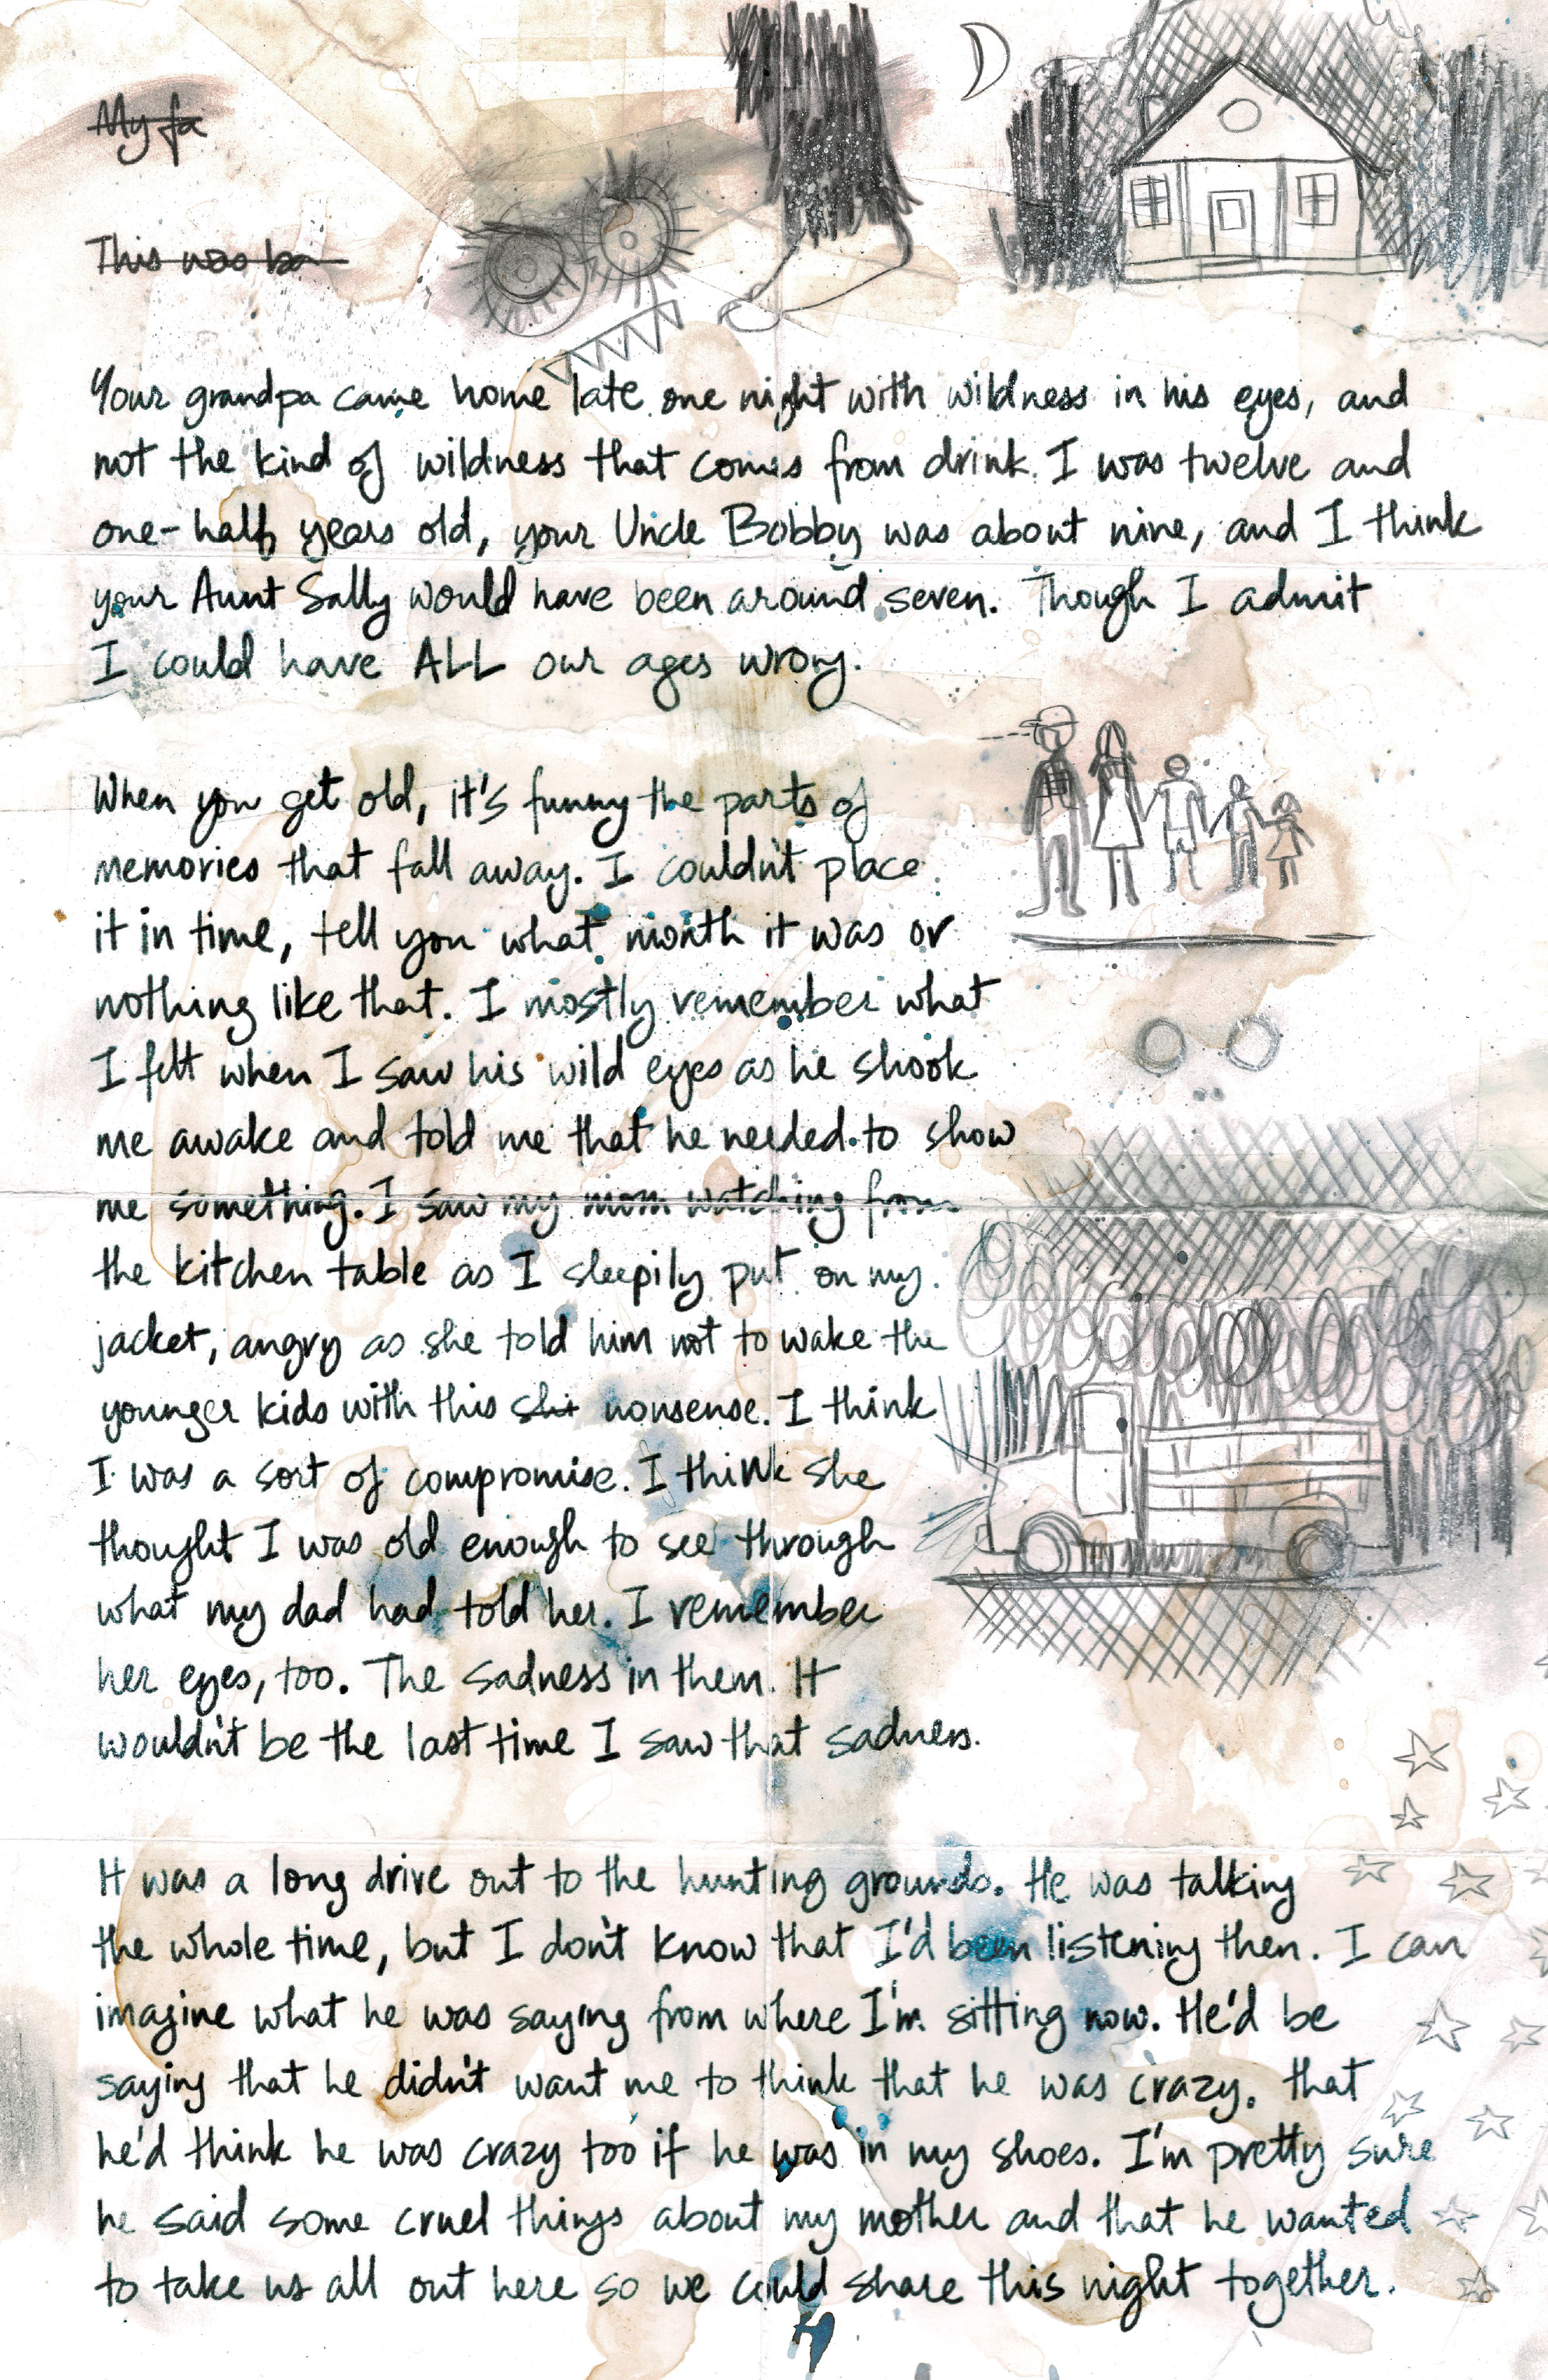 My fa
This was ba
Your grandpa came home late one night with wildness in his eyes, and
not the kind of wildness that comes from drink. I was twelve and
one-half years old, your Uncle Bobby was about nine, and I think
your Aunt Sally would have been around seven. Though I admit
I could have ALL our ages wrong.
When you get old, it's funny the parts of
memories that fall away. I couldn't place
it in time, tell you what month it was or
nothing like that. I mostly remember what
I felt when I saw his wild eyes as he shook
me awake and told me that he needed to show
me something. I saw my mom watching from
the kitchen table as I sleepily put on my
jacket, angry as she told him not to wake the
younger kids with this shi nonsense. I think
I was a sort of compromise. I think she
thought I was old enough to see through
what my dad had told her. I remember
her eyes, too. The sadness in them. It
wouldn't be the last time I saw that sadness.
It was a long drive out to the hunting grounds. He was talking
the whole time, but I don't know that I'd been listening then. I can
imagine what he was saying from where I'm sitting now. He'd be
saying that he didn't want me to think that he was crazy. that
he'd think he was crazy too if he was in my shoes. I'm pretty sure
he said some cruel things about my mother and that he wanted
to take us all out here so we could share this night together.